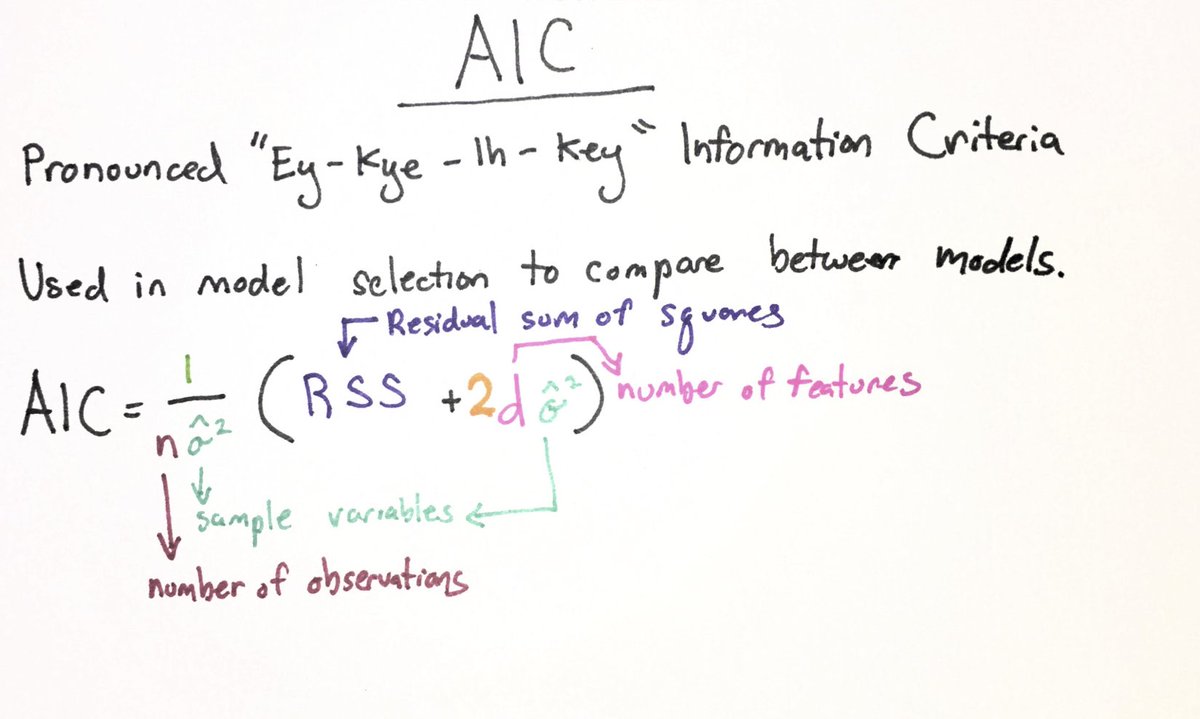 AIC
Pronounced "Ey-Kye-Ih-Key" Information Criteria
Used in model selection to compare between models.
Residual sum of squares
AIC = 1 / n σ̂² (RSS + 2d σ̂²) number of features
sample variables
number of observations